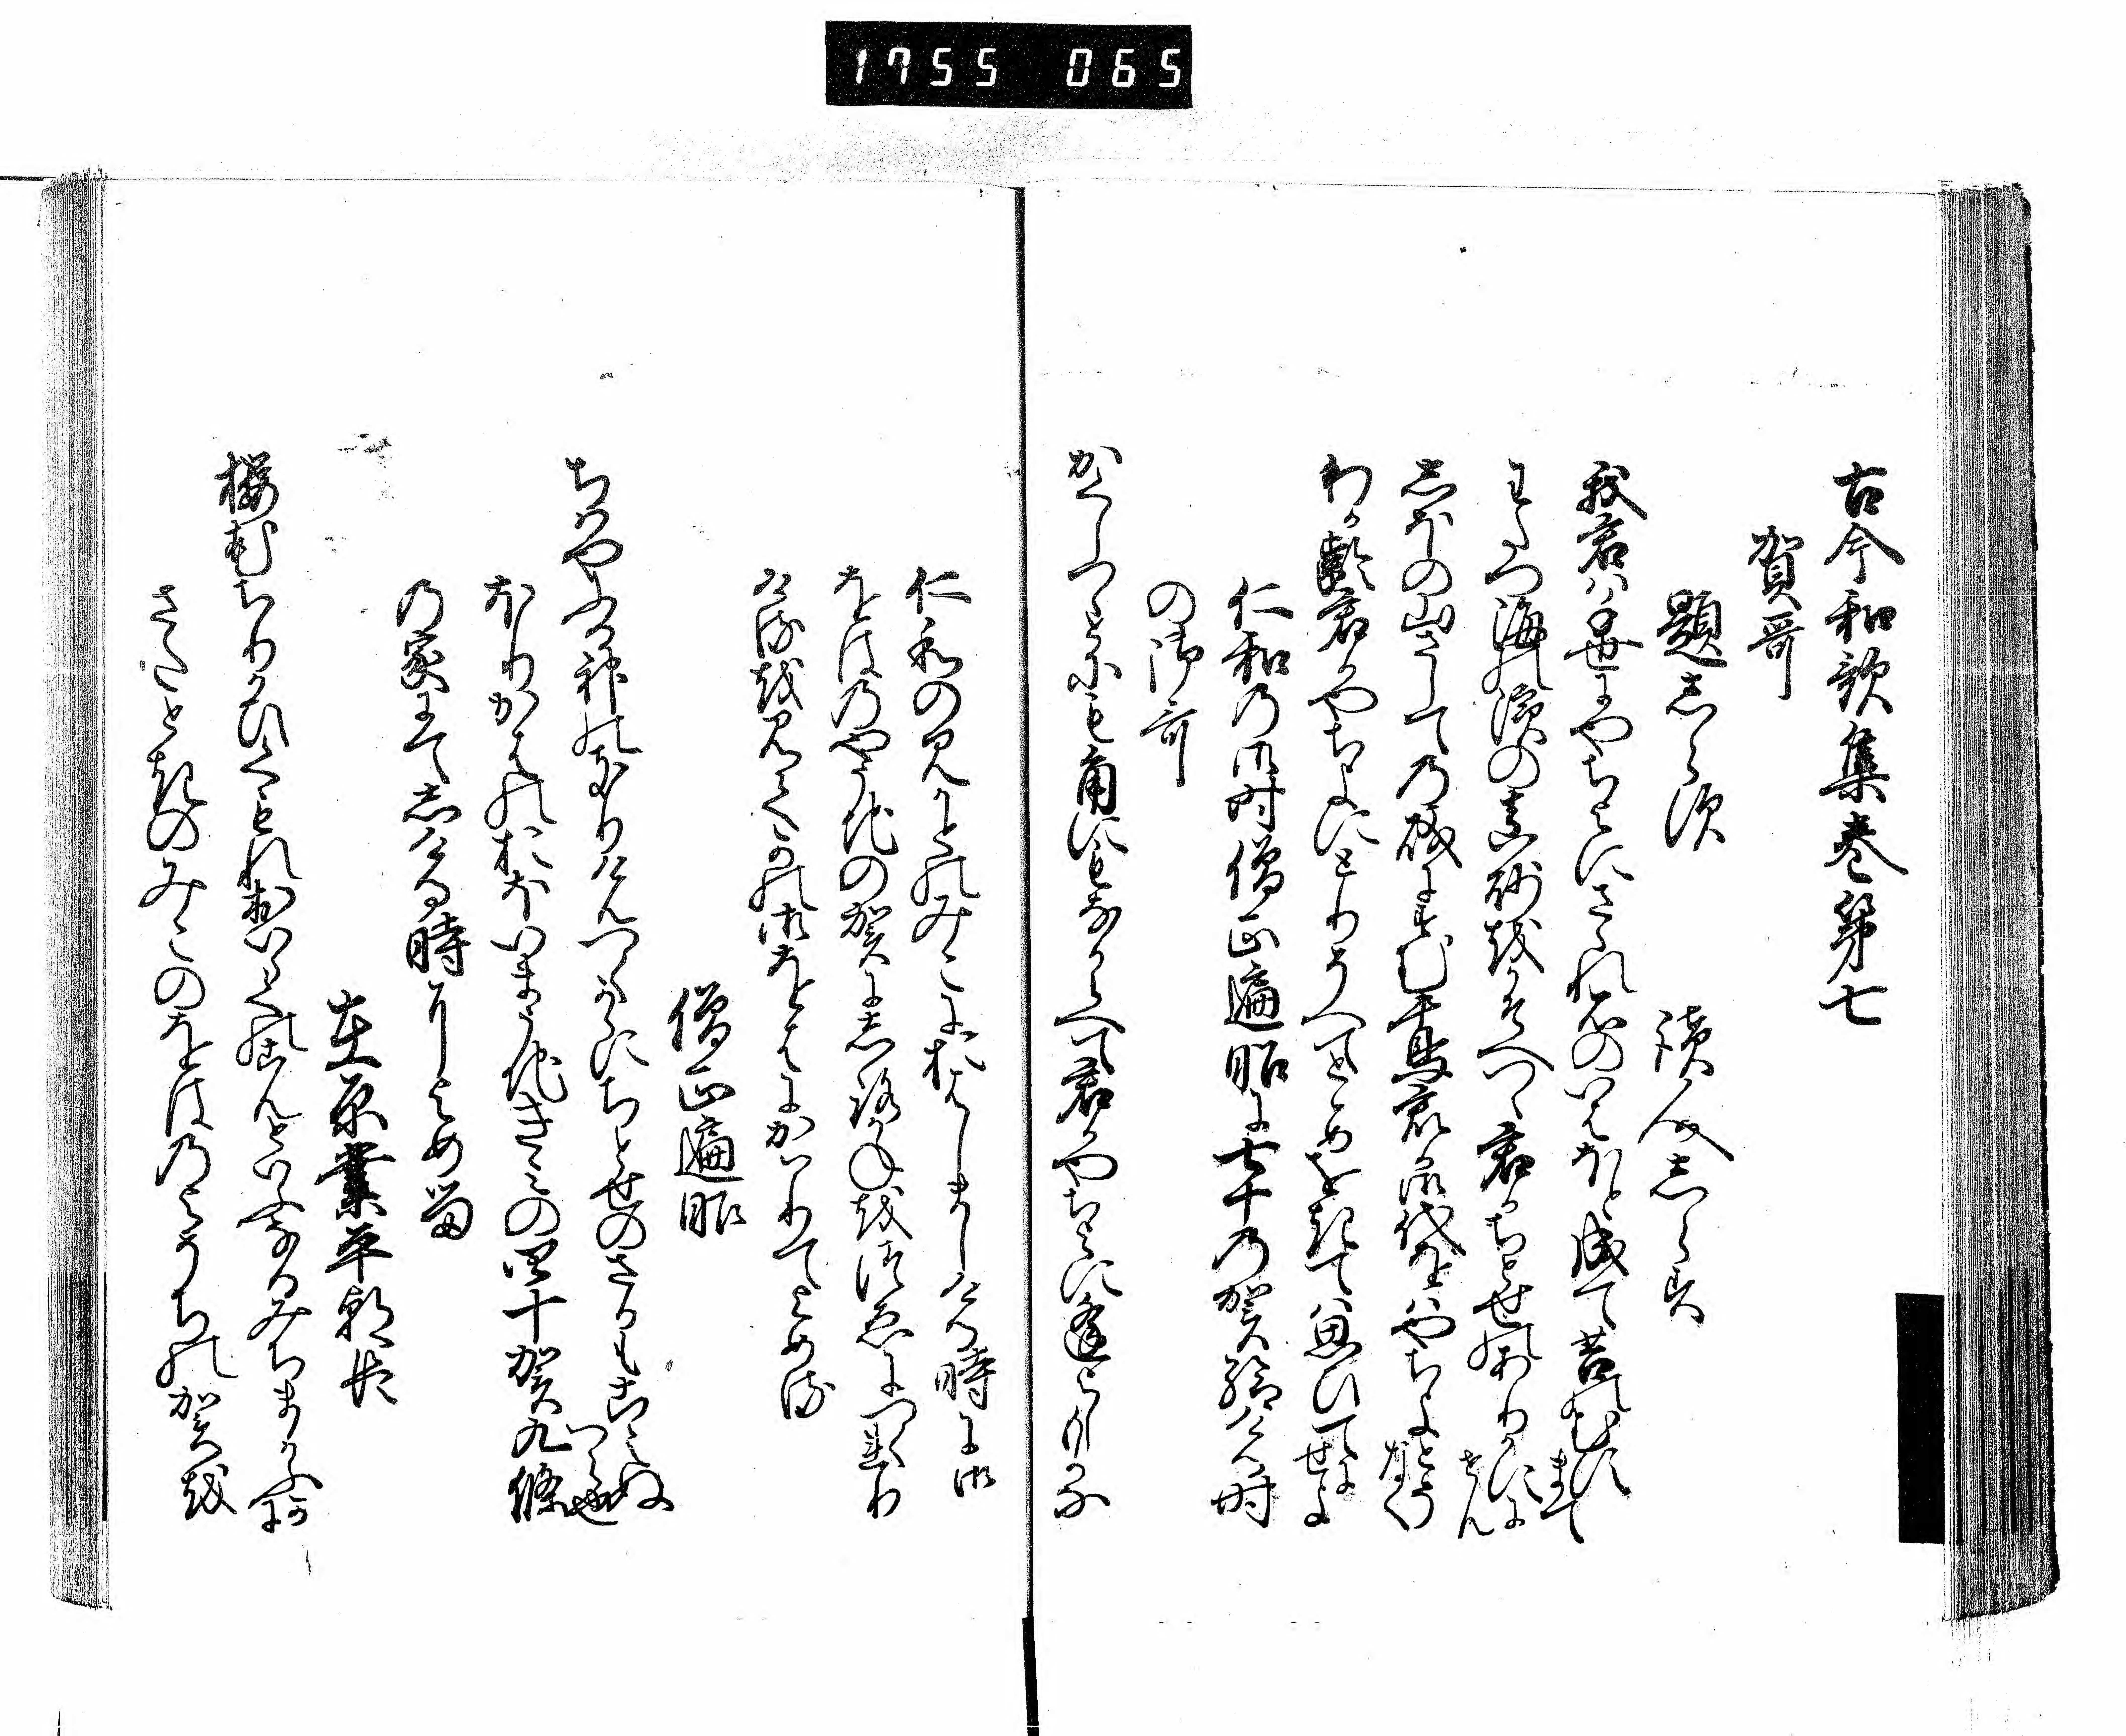 1755 065
古今和歌集巻第七
賀哥
題しらす
読人しらす
我君は千世にやちよにさゝれ石のいはほと成て苔のむすまて
わたつ海の浜の真砂をかそへつゝ君かちとせのありかすにせん
しほの山さしての磯にすむ千鳥君か御代をはやちよとそなく
わか齢君かやちよにとりそへてとゝめをきては思ひてにせよ
仁和の御時僧正遍昭に七十の賀給ける時
の御哥
かくしつゝとにもかくにもなからへて君かやちよに逢よしもかな
仁和のみかとのみこにおはしましける時に御
をはのやそちの賀にしろかねをつゑにつくれり
けるを見てかの御をはにかはりてよめる
僧正遍昭
ちはやふる神のきりけんつくからにちとせのさかもこえぬへら也
ほりかはのおほいまうちきみの四十賀九條
の家にてしける時によめる
在原業平朝臣
桜花ちりかひくもれ老らくのこんといふなるみちまかふかに
さたときのみこのをはのよそちの賀を